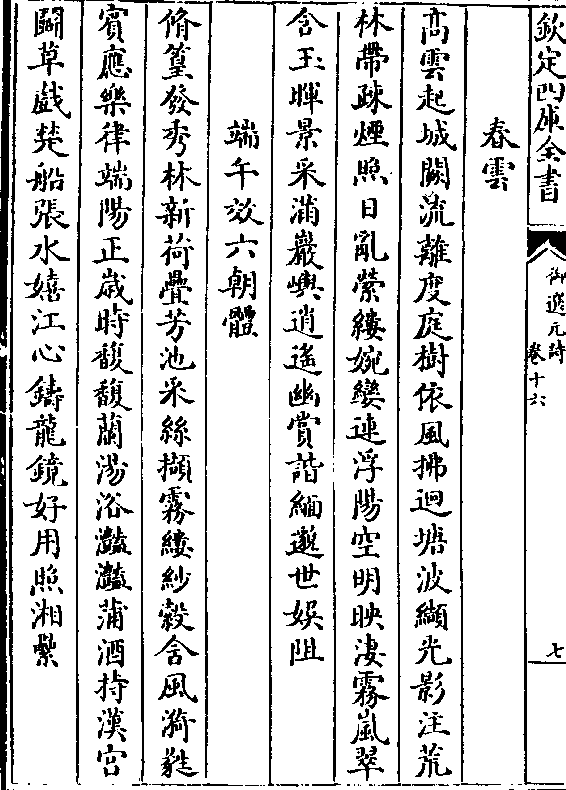 欽定四庫全書
御選元詩
卷十六
七
春雲
高雲起城闕流離度庭樹依風拂迥塘波纈光影注荒
林帶疎煙照日亂縈縷婉孌連浮陽空明映淒霧嵐翠
含玉暉景采滿巖嶼逍遙幽賞諧緬邈世娛阻
端午效六朝體
脩篁發秀林新荷疊芳池采絲擷霧縷紗縠含風漪蕤
賓應樂律端陽正歲時馥馥蘭湯浴灎灎蒲酒持漢宮
鬭草戲楚船張水嬉江心鑄龍鏡好用照湘纍